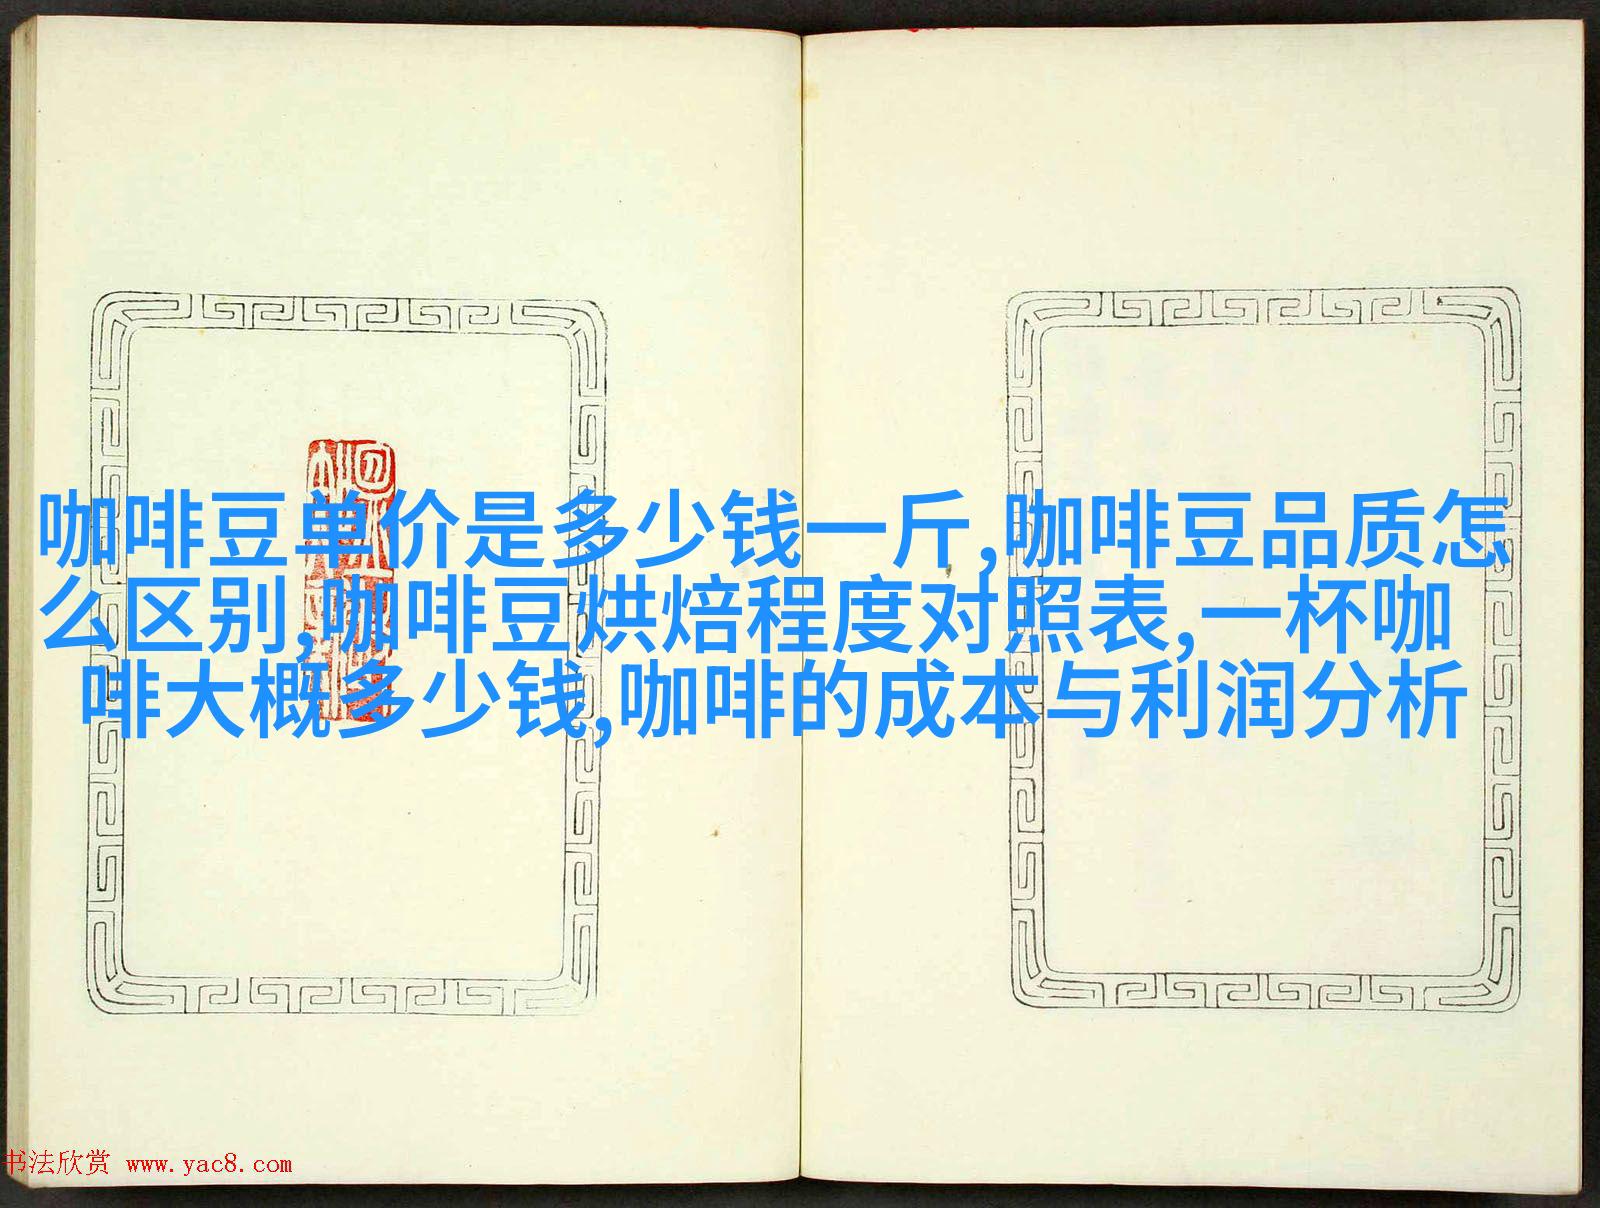 咖啡豆单价是多少钱一斤,咖啡豆品质怎
么区别,咖啡豆烘焙程度对照表,一杯咖
啡大概多少钱,咖啡的成本与利润分析
书法欣赏 www.yac8.com